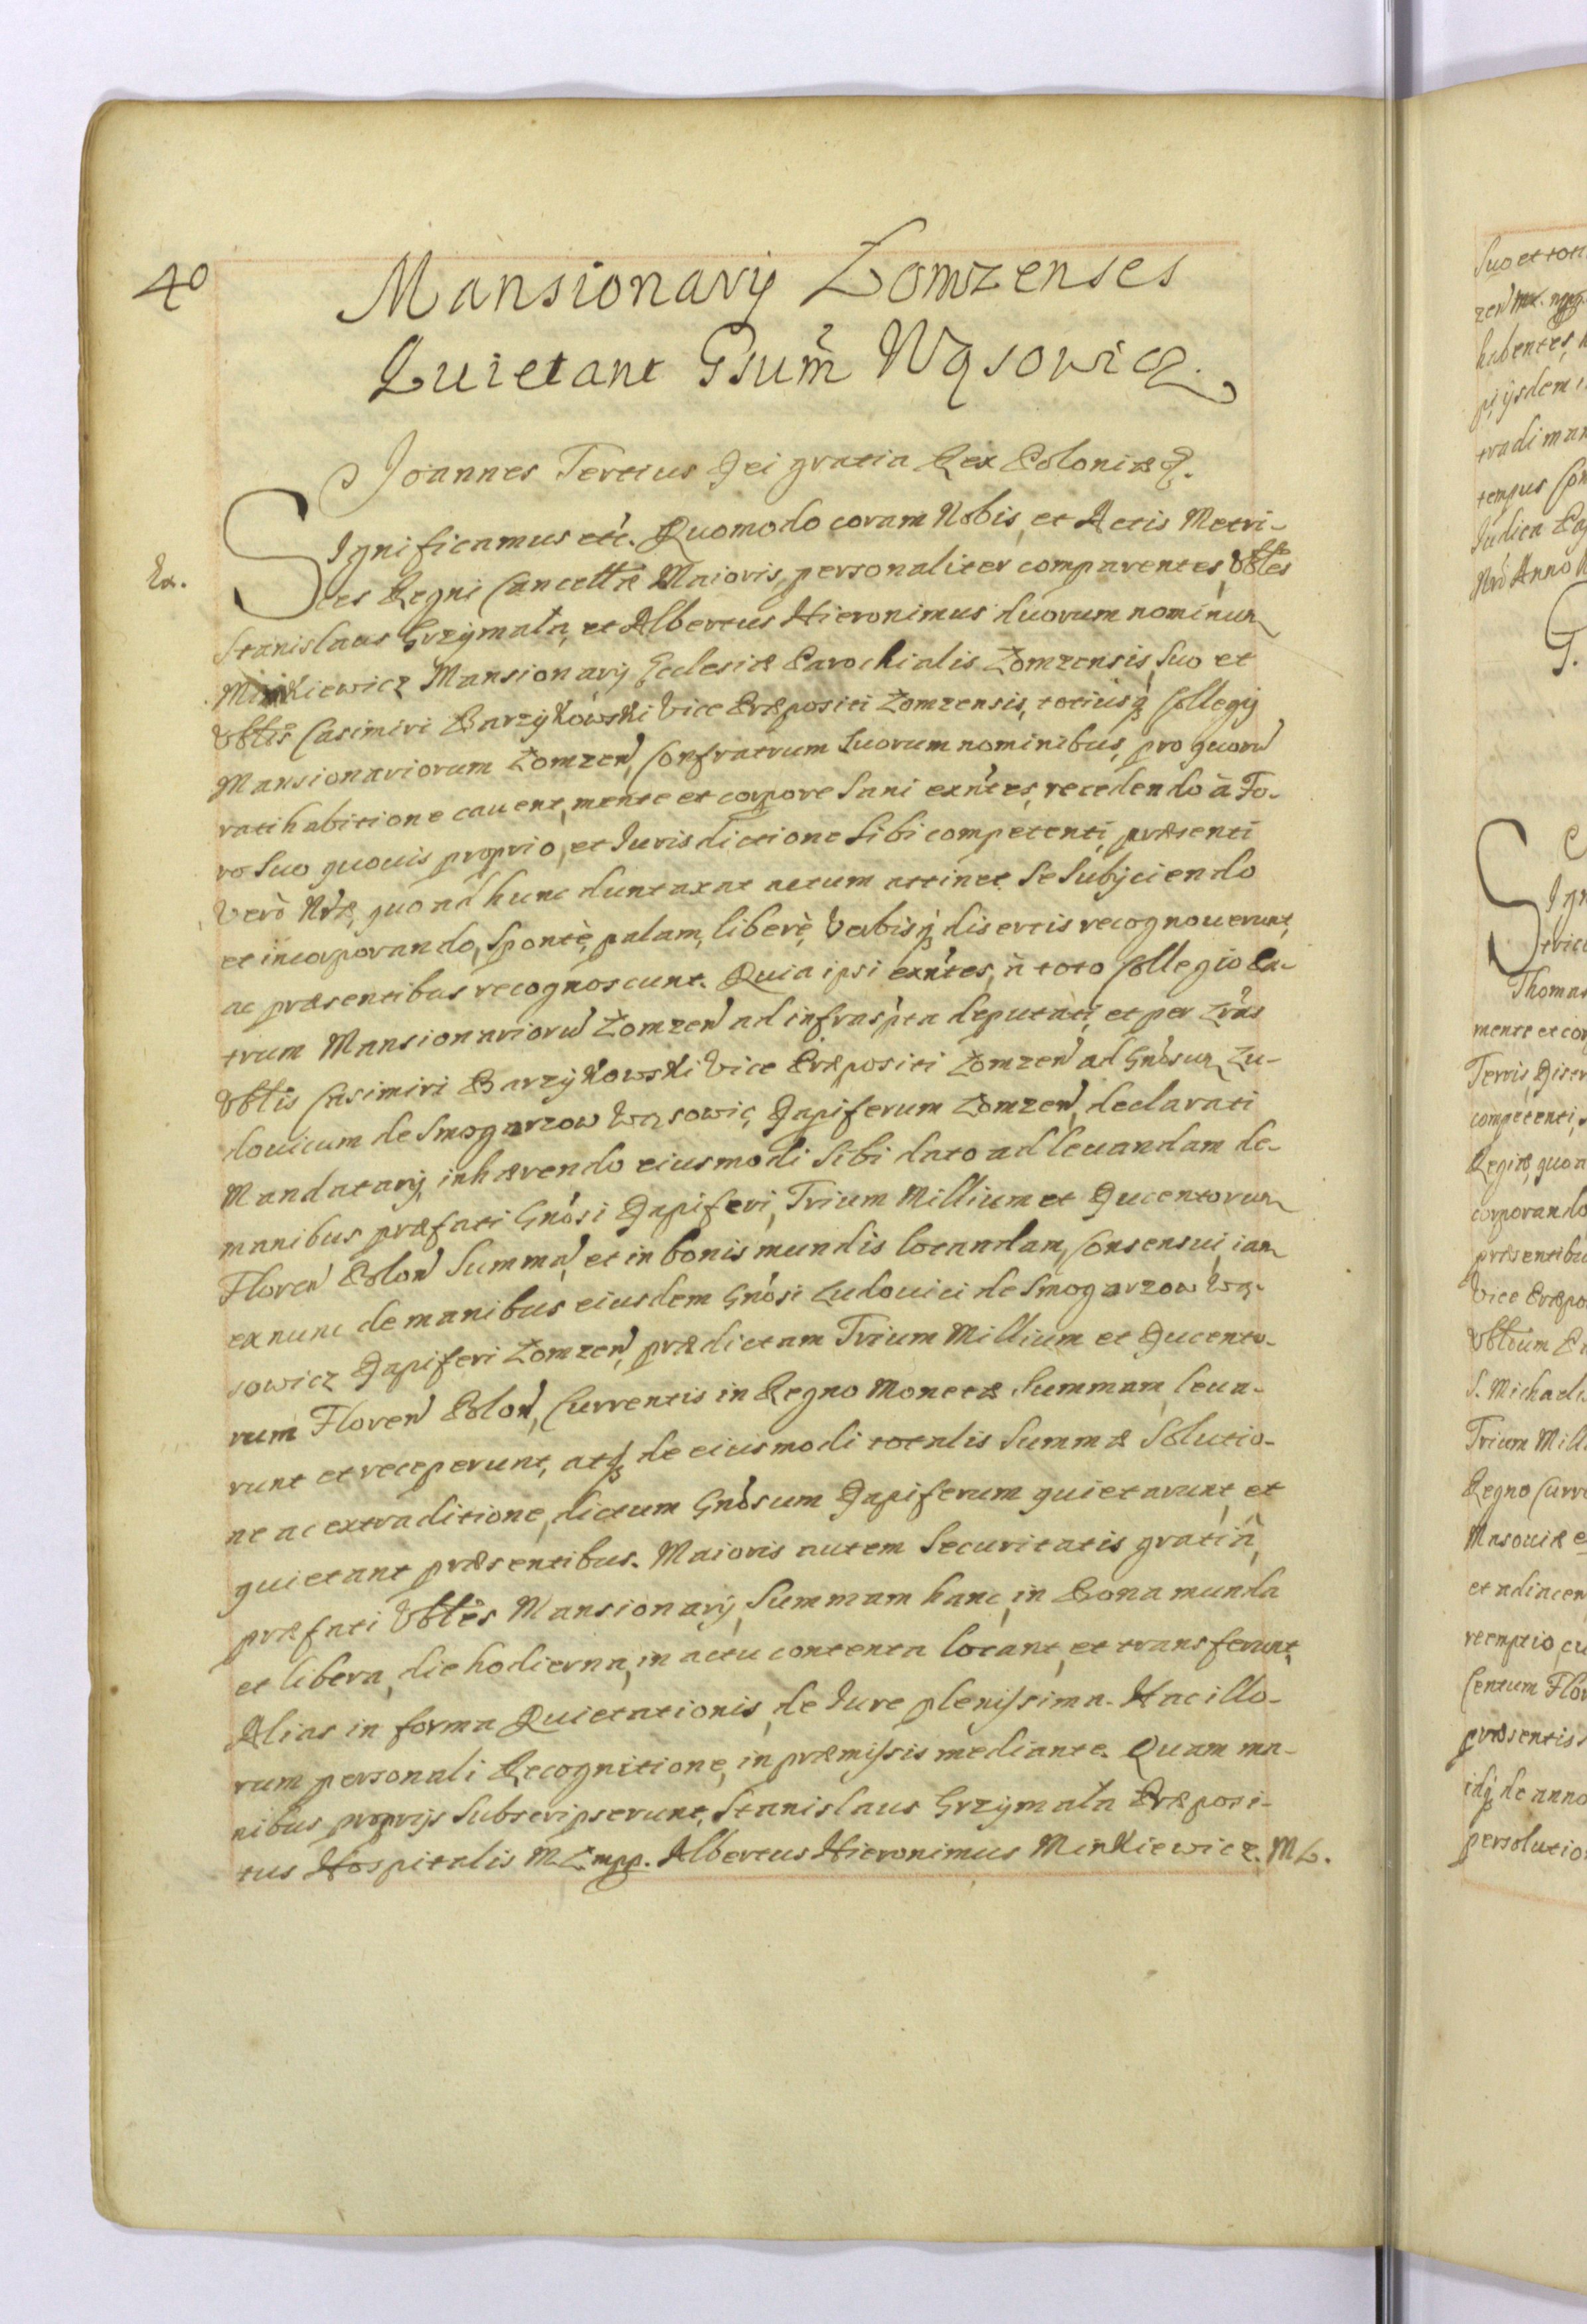 40
Mansionarij Łomzenses
Quietant Gsum̃ Wąsowicz.
Joannes Tertius Dei gratia Rex Poloniæ &.
Ex.
Significamus etc. Quomodo coram Nobis, et Actis Metri-
ces Regni Cancellræ Maioris, personaliter comparentes, Vbles
Stanislaus Grzymała, et Albertus Hieronimus duorum nominum
Minkiewicz Mansionarij Ecclesiæ Parochialis Łomzensis, Suo et
Vblis Casimiri Barzykowski Vice Præpositi Łomzensis, totiusq3 Collegij
Mansionariorum Łomzen, Confratrum Suorum nominibus, pro quorũ
ratihabitione cauent, mente et corpore Sani exn̄tes, recedendo à Fo-
ro Suo quouis proprio, et Jurisdictione Sibi competenti, præsenti
Verò Nr̃æ, quo ad hunc duntaxat actum attinet Se Subijciendo
et incorporando, Spontè, palam, liberè, Verbisq3 disertis recognouerunt,
ac præsentibus recognoscunt. Quia ipsi exn̄tes, à toto Collegio Pa-
trum Mansionariorũ Łomzen ad infrasp̃ta deputati, et per Lr̃as
Vblis Casimiri Barzykowski Vice Præpositi Łomzen ad Gn̄osum Lu-
douicum de Smogorzow Wąsowic, Dapiferum Łomzen, declarati
Mandatarij, inhærendo eiusmodi Sibi dato ad leuandam de
manibus præfati Gn̄osi Dapiferi, Trium Millium et Ducentorum
Floren Polon Summã, et in bonis mundis locandam, Consensui, iam
ex nunc de manibus eiusdem Gn̄osi Ludouici de Smogarzow Wą-
sowicz Dapiferi Łomzen, prædictam Trium Millium et Ducento-
rum Floren Polon, Currentis in Regno Monetæ Summam, leua-
runt et receperunt, atq3 de eiusmodi totalis Summæ Solutio-
ne ac extraditione, dictum Gn̄osum Dapiferum quietarunt, et
quietant præsentibus. Maioris autem Securitatis gratiã,
præfati Vbles Mansionarij, Summam hanc, in Bona munda
et libera, die hodierna, in actu contenta locant, et transferunt,
Alias in forma Quietationis, de Jure plenissima. Hac illo-
rum personali Recognitione, in præmissis mediante. Quam ma-
nibus proprijs Subscripserunt, Stanislaus Grzymała Præposi-
tus Hospitalis M Ł mpp. Albertus Hieronimus Minkiewicz. M Ł.
Suo et toti
habentes,
pijsdem
tradi man
tempus Con
Judica
Nr̃i Anno
G.
Sign
trice
Thomas
mente et cor
Terris,
competenti,
Regiæ, quo a
corporando
præsentibu
Vice Præpo
S. Michaelis
Trium Mill
Regno Curr
Masouiæ e
et adiacen
reemptio, cu
Centum Flor
præsentis
idq3 de anno
persolutio